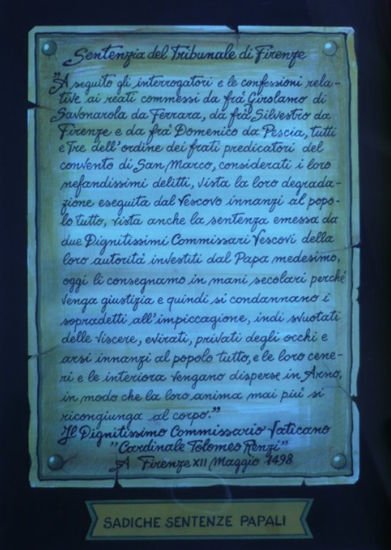 Sentenzia del Tribunale di Firenze
"A seguito gli interrogatori e le confessioni rela-
tive ai reati commessi da frà Girolamo di
Savonarola da Ferrara, da frà Silvestro da
Firenze e da frà Domenico da Pescia, tutti
e Tre dell'ordine dei frati predicatori del
convento di San Marco, considerati i loro
nefandissimi delitti, vista la loro degrada-
zione eseguita dal Vescovo innanzi al popo-
lo tutto, vista anche la sentenza emessa da
due Dignitissimi Commissari Vescovi della
loro autorità investiti dal Papa medesimo,
oggi li consegnamo in mani secolari perché
venga giustizia e quindi si condannano i
sopradetti all'impiccagione, indi svuotati
delle viscere, evirati, privati degli occhi e
arsi innanzi al popolo tutto, e le loro cene-
ri e le interiora vengano disperse in Arno,
in modo che la loro anima mai più si
ricongiunga al corpo."
Il Dignitissimo Commissario Vaticano
"Cardinale Tolomeo Renzi"
A Firenze XII Maggio 1498
SADICHE SENTENZE PAPALI